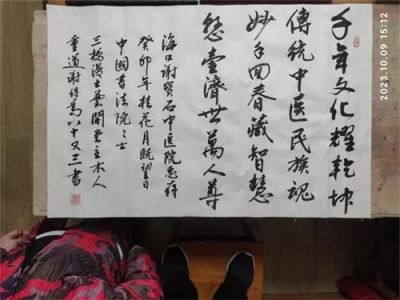 千年文化耀乾坤
傳統中医民族魂
妙手回春藏智慧
懸壺濟世萬人尊
海口謝寳石中医院惠存
癸卯年桂花月既望日
中國書法院之士
三橋漫士藝閣堂主木人
重道謝詩萬八十又三書
2023.10.09 15:12